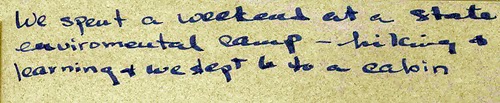 We spent a weekend at a State
enviromental camp - hiking &
learning & we slept 6 to a cabin